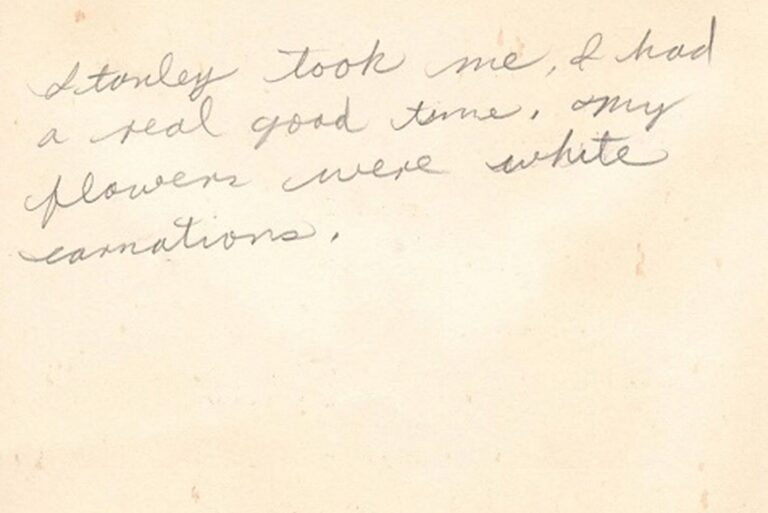 Stanley took me, I had
a real good time. My
flowers were white
carnations.